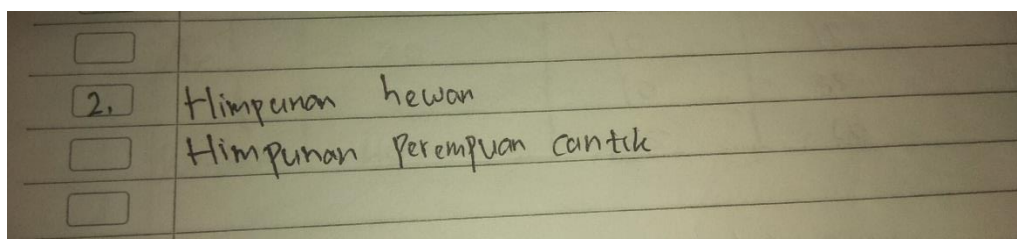 2. Himpunan hewan
Himpunan Perempuan cantik